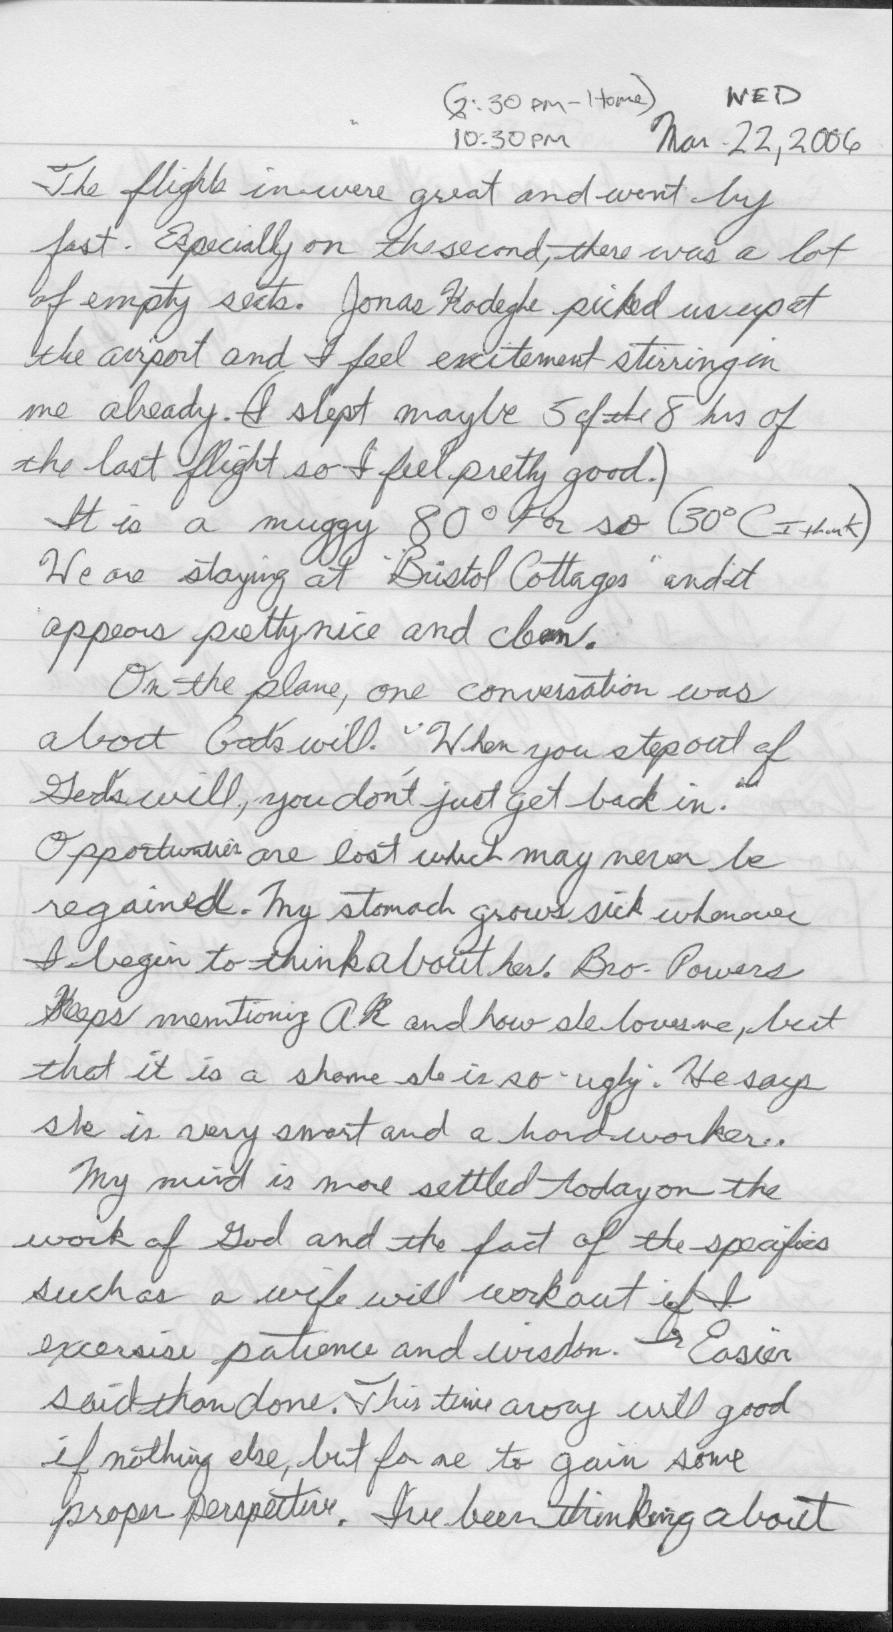 (2:30 PM - Home) WED
10:30 PM Mar. 22, 2006
The flights in were great and went by
fast. Especially on the second, there was a lot
of empty seats. Jonas picked us up at
the airport and I feel excitement stirring in
me already. (I slept maybe 5 of the 8 hrs of
the last flight so I feel pretty good.)
It is a muggy 80° F or so (30° C I think)
We are staying at "Bristol Cottages" and it
appears pretty nice and clean.
On the plane, one conversation was
about God's will. "When you step out of
God's will, you don't just get back in."
Opportunities are lost which may never be
regained. My stomach grows sick whenever
I begin to think about her. Bro. Powers
keeps memtioning AR and how she loves me, but
that it is a shame she is so "ugly". He says
she is very smart and a hard worker..
My mind is more settled today on the
work of God and the fact of the specifics
such as a wife will work out if I
excersise patience and wisdom. → Easier
said than done. This time away will good
if nothing else, but for me to gain some
proper perspective. I've been thinking about